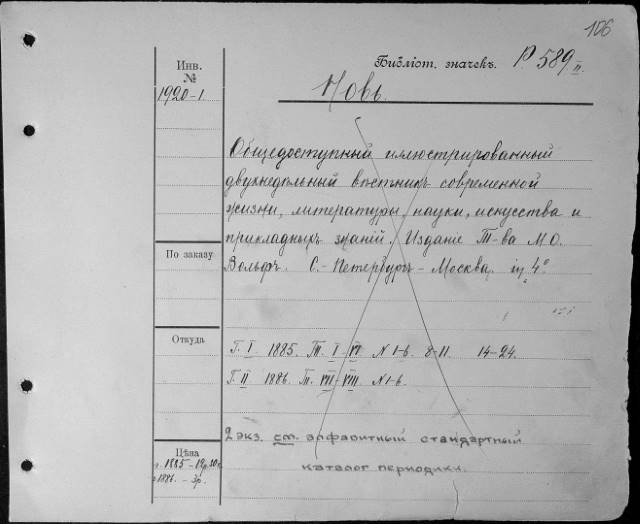 106
Инв. №
Библіот. значекъ. Р. 589 II.
1920-1.
Новь.
Общедоступный иллюстрированный
двухнедѣльный вѣстникъ современной
жизни, литературы, науки, искусства и
прикладныхъ знаній. Изданіе Т-ва М.О.
Вольфъ. С.-Петербургъ - Москва. in 4°
По заказу
Откуда
Г. I 1885. Т. I-VI N 1-6. 8-11. 14-24.
Г. II 1886. Т. VII-VIII. N 1-6.
2 экз. см. алфавитный стандартный
каталог периодики.
Цѣна
1885 -
1886. - 3р.